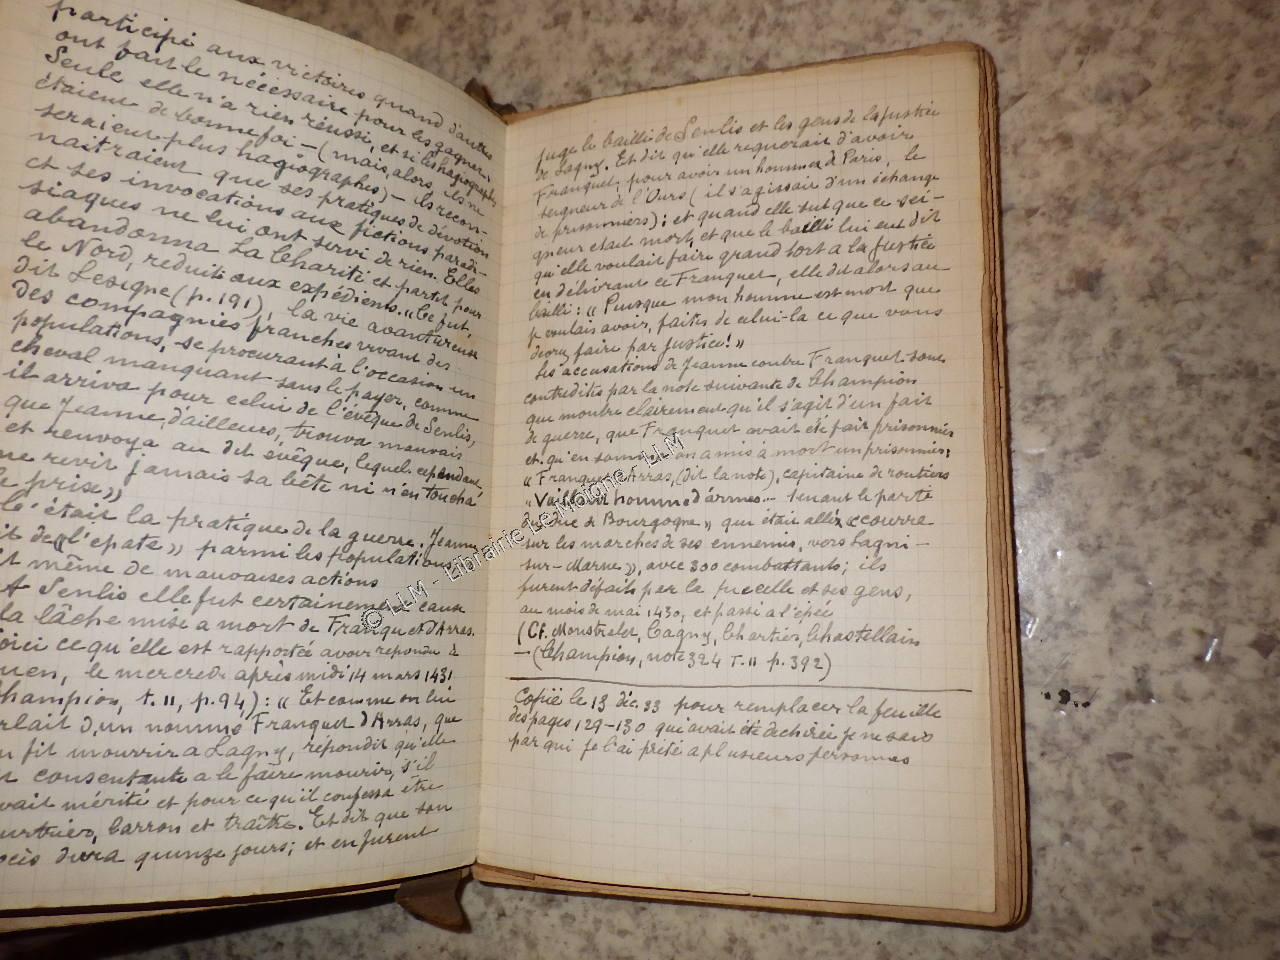 participé aux victoires quand d'autres
ont fait le nécessaire pour les gagner,
Seule elle n'a rien réussi, et si les hagiographes
étaient de bonne foi — (mais, alors, ils ne
seraient plus hagiographes) — ils recon-
naîtraient que ses pratiques de dévotion
et ses invocations aux fictions paradi-
siaques ne lui ont servi de rien. Elle
abandonna La Charité et partit pour
le Nord, réduite aux expédients. "Ce fut,
dit Lesigne (p. 191), la vie aventureuse
des compagnies franches vivant des
populations, se procurant à l'occasion un
cheval manquant sans le payer, comme
il arriva pour celui de l'évêque de Senlis,
que Jeanne, d'ailleurs, trouva mauvais
et renvoya au dit évêque, lequel cependant,
ne revit jamais sa bête ni n'en toucha
le prise"
C'était la pratique de la guerre. Jeanne
it de "l'épate" parmi les populations
t même de mauvaises actions
A Senlis elle fut certainement cause
la lâche mise a mort de Franquet d'Arras.
oici ce qu'elle est rapportée avoir répondu à
uen, le mercredi après midi 14 mars 1431
hampion, t. 11, p. 94) : "Et comme on lui
rlait d'un nommé Franquet d'Arras, que
n fit mourrir a Lagny, répondit qu'elle
t consentante a le faire mourir, s'il
vait mérité et pour ce qu'il confessa être
urtrier, larron et traître. Et dit que son
ocès dura quinze jours; et en furent
juge le bailli de Senlis et les gens de la justice
de Lagny. Et dit qu'elle requerait d'avoir
Franquet pour avoir un homme de Paris, le
seigneur de l'Ours (il s'agissait d'un échange
de prisonniers); et quand elle sut que ce sei-
gneur etait mort, et que le bailli lui eut dit
qu'elle voulait faire grand tort a la Justice
en délivrant ce Franquet, elle dit alors au
bailli: "Puisque mon homme est mort que
je voulais avoir, faites de celui-la ce que vous
devrez faire par justice!"
Les accusations de Jeanne contre Franquet sont
contredites par la note suivante de Champion
que montre clairement qu'il s'agit d'un fait
de guerre, que Franquet avait été fait prisonnier
et qu'en somme on a mis à mort un prisonnier:
"Franquet d'Arras, (dit la note), capitaine de routiers
"Vaillant homme d'armes — tenant le parti
du duc de Bourgogne" qui était allé "courre
sur les marches de ses ennemis, vers Lagni-
sur-Marne", avec 300 combattants; ils
furent défaits par la pucelle et ses gens,
au mois de mai 1430, et passé a l'épée
(Cf. Monstrelet, Cagny, Chartier, Chastellain
— (Champion, note 324 T. 11 p. 392)
Copié le 13 déc. 33 pour remplacer la feuille
des pages 129-130 qui avait été déchirée je ne sais
par qui je l'ai prêté a plusieurs personnes
© LLM - Librairie Le Moigne - LLM